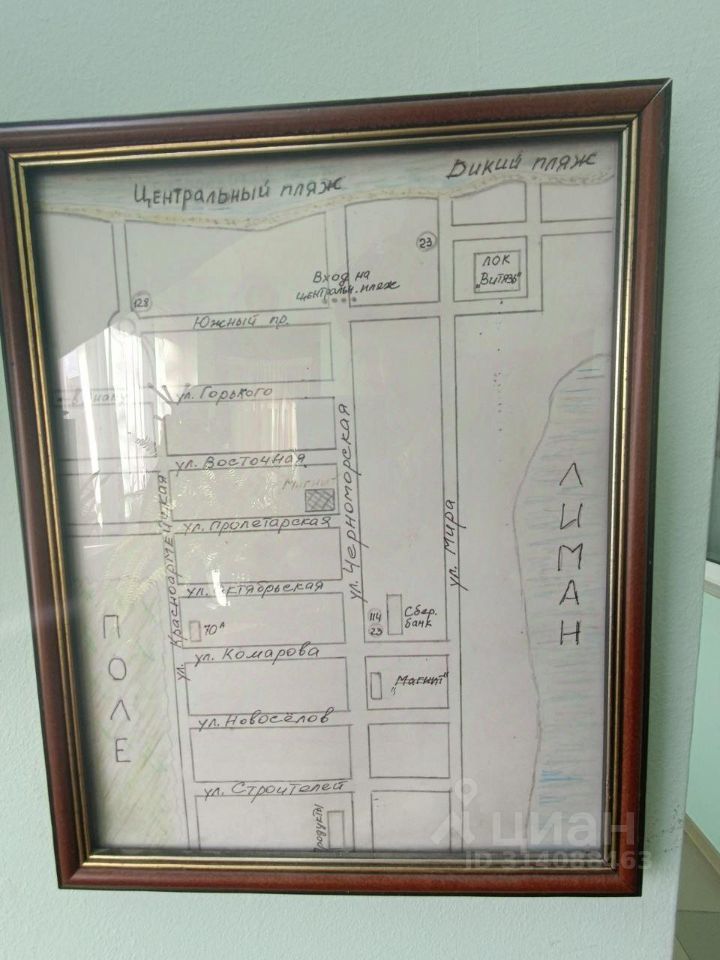 Центральный пляж
Дикий пляж
23
ЛОК
"Витязь"
Вход на
центральн. пляж
128
Южный пр.
ул. Горького
ул. Восточная
Магнит
ул. Пролетарская
ул. Красноармейская
ул. Черноморская
ул. Мира
ЛИМАН
ул. Октябрьская
114
23
Сбер.
банк
70А
ПОЛЕ
ул. Комарова
"Магнит"
ул. Новосёлов
ул. Строителей
Продукты
циан
ID 314088463